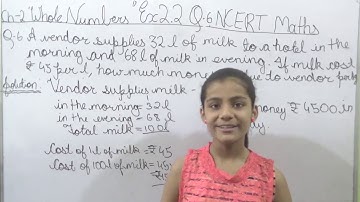 Ch-2 "Whole Numbers" Ex 2.2 Q.6 NCERT Maths
Q.6 A vendor supplies 32 l of milk to a hotel in the
morning and 68 l of milk in evening. If milk cost
₹ 45 per l, how much money due to vendor per
Solution: Vendor supplies milk -
in the morning = 32 l
money ₹ 4500 is
in the evening = 68 l
Total milk = 100 l
Cost of 1 l of milk = ₹ 45
Cost of 100 l of milk = 45